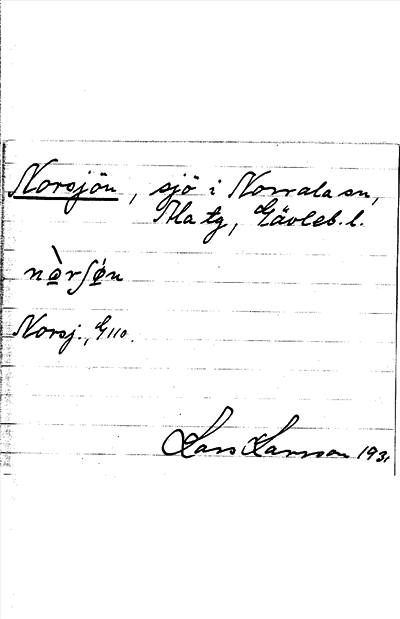 Norsjön, sjö i Norrala sn,
Ala tg, Gävleb. l.
nòrʃǿn
Norsj., G 110.
Lars Larsson 1931